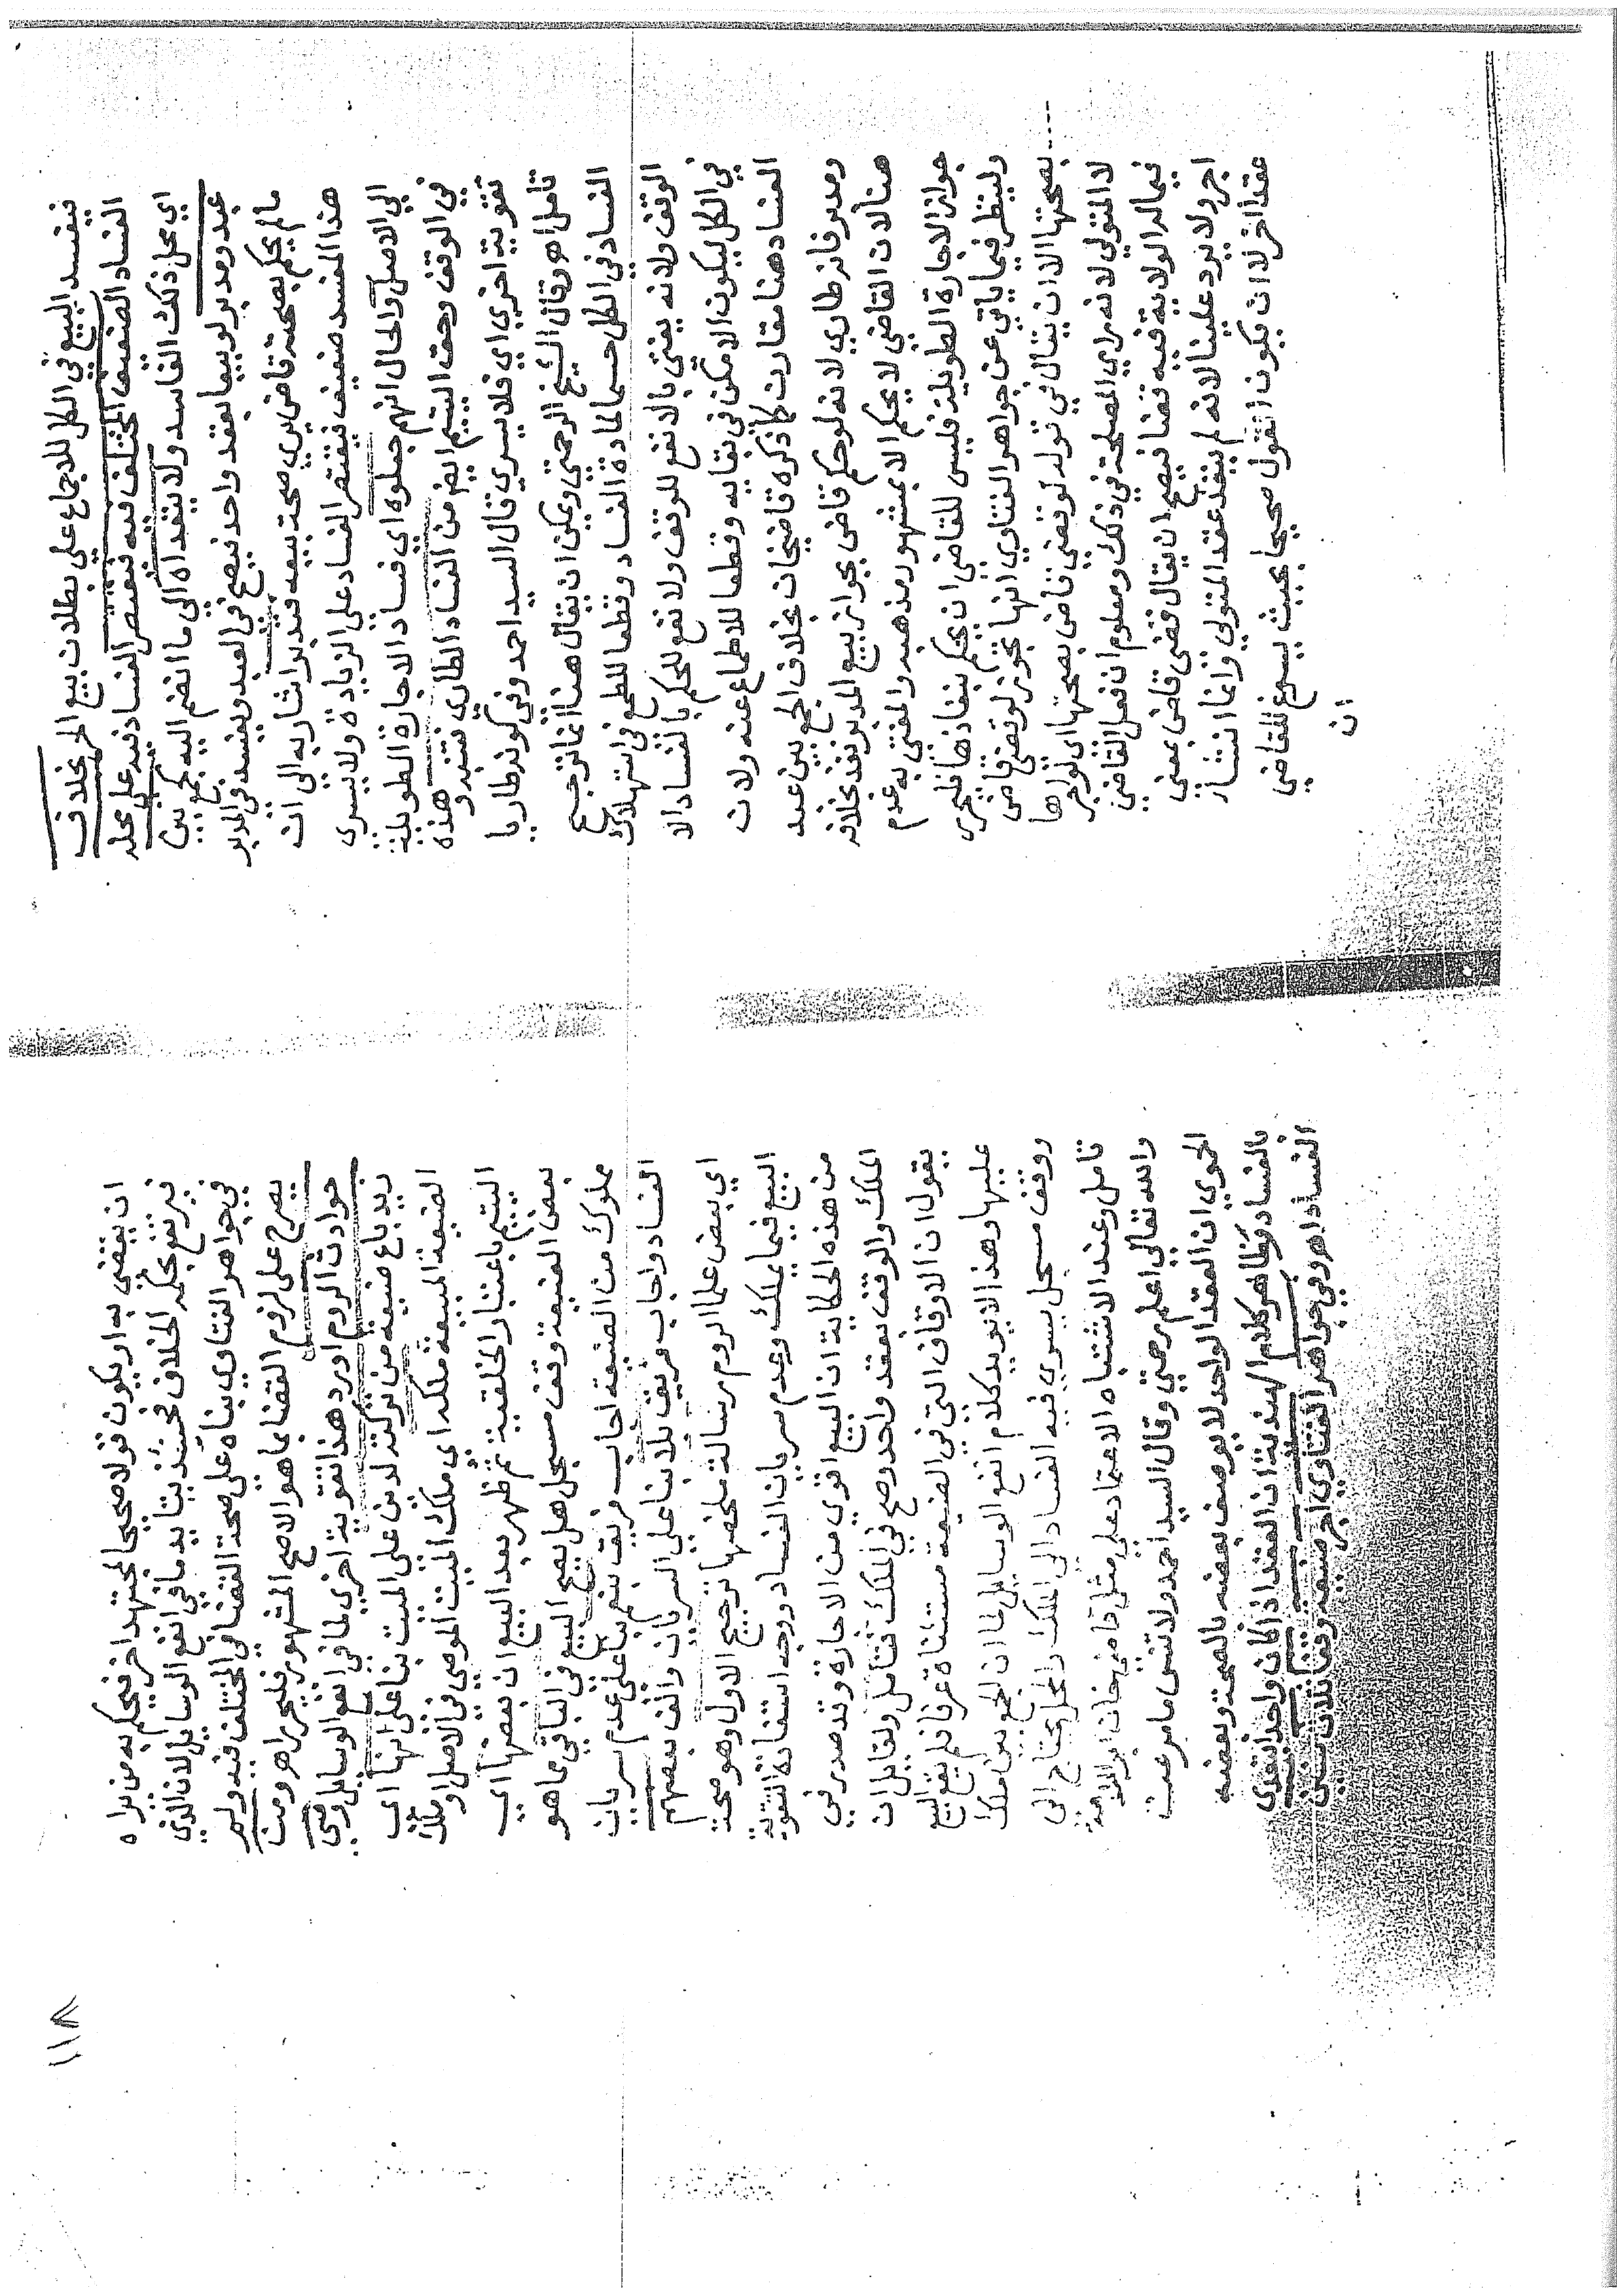 فيفسد البيع في الكل للاجماع علي بطلان بيع الحر بخلاف
الفساد الضعيف المختلف فيه فيقتصر الفساد فيه علي محله
اي محل ذلك الفاسد ولا يتعداه الي ما انضم اليه كجمع بين
عبد ومدبر لو بيعا بعقد واحد فيصح في العبد ويفسد في المدبر
مالم يحكم بصحته قاض يري صحة بيعه فيه اشار به الي ان
هذا المفسد ضعيف فيقتصر الفساد علي الزيادة ولا يسري
الي الاصل والحال انهم جعلوه اي فساد الاجارة الطويلة
في الوقف وحق اليتيم ايض من الفساد الطاري فتنبه وهذه
تقوية اخري اي فلا يسري قال السيد احمد وفي كونه طاريا
تامل اهـ وقال الشيخ الرحمتي ويمكن ان يقال هنا انما ترجح
الفساد في الكل حسما لمادة الفساد وقطعا للطمع في استهلاك
الوقف ولانه يفتي بالانفع للوقف ولا نفع للحكم بالفساد الا
في الكل ليكون الامكن في بقايه وقطعا للاطماع عنه ولان
الفساد هنا مقارن كما ذكره قاضيخان بخلاف الجمع بين عبد
ومدبر فانه طاري لانه لو حكم قاضى بجواز بيع المدبر نفذ بخلافه
هنا لان القاضي لا يحكم الا بمشهور مذهبه والمفتي به عدم
جواز الاجارة الطويلة فليس للقاضي ان يحكم بنفاذها فليحرر
ولينظر فيما ياتي عن جواهر الفتاوي انها تجوز لو قضي قاضى
بصحتها الا ان يقال في قوله لو قضي قاضى بصحتها اي لو اجرها
لا المتولي لانه راي المصلحة في ذلك ومعلوم ان فعل القاضي
فيما له الولاية فيه قضا فيصح ان يقال قضى قاضى بمعني
اجر ولا يرد علينا لانه لم ينفذ عقد المتولي وانما انشاء
عقدا اخر لا ان يكون القول صحيحا بحيث يسوغ للقاضي
ان
ان يقضى به او يكون قولا صحيحا لمجتهد اخر فيحكم به من يراه
فيرتفع بحكمه الخلاف فحينئذ يتايد ما في انفع الوسايل لان الذي
في جواهر الفتاوي بناه علي صحة القضا في المختلف فيه ولم
يصرح علي لزوم القضا بما هو الاصح المشهور فليحرر اهـ ومن
حوادث الروم اورد هذا تقوية اخري لما في انفع الوسايل وصي
زيد باع ضيعة من تركته لدين علي الميت بنا علي انها اي
الضيعة المبيعة ملكه اي ملك الميت الموصي في الاصل او ملك
اليتيم باعتبار الخلفية ثم ظهر بعد البيع ان بعضها اي
بعض الضيعة وقف مسجل هل يصح البيع في الباقي مما هو
مملوك من الضيعة اجاب فريق بنعم بنا علي عدم سريان
الفساد واجاب فريق بلا بنا علي السريان والف بعضهم
اي بعض علما الروم رسالة ملخصها ترجيح الاول وهو صحة
البيع فيما يملك وعدم سريان الفساد ووجه استفادة التقوية
من هذه الحكاية ان البيع اقوي من الاجارة وقد صدر في
الملك والوقف بعقد واحد وصح في الملك فتامل ولقايل ان
يقول ان الاوقاف التي في الضيعة مستثناة عرفا فلم يقع البيع
عليها وهذا لا يويد كلام انفع الوسايل لما ان الجمع بين ملك
ووقف مسجل يسري فيه الفساد الي الملك والمحل يحتاج الي
تامل وعند الاشتباه الاعتماد علي مثل قاضى خان ابراء للذمة
والله تعالي اعلم رحمتي وقال السيد احمد ولا تنس ما مر عن
الحموي ان العقد الواحد لا يوصف بعضه بالصحة وبعضه
بالفساد وظاهر كلام الهندية ان العقد اذا كان واحدا تعدي
الفساد اهـ وفي جواهر الفتاوي اجر ضيعة وقفا ثلاث سنين
١١٧